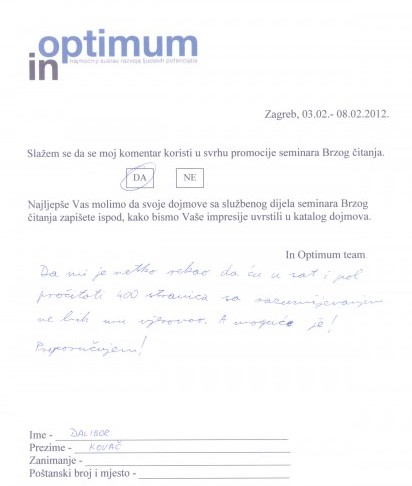 in optimum
najmoćniji sustav razvoja ljudskih potencijala
Zagreb, 03.02.- 08.02.2012.
Slažem se da se moj komentar koristi u svrhu promocije seminara Brzog čitanja.
DA NE
Najljepše Vas molimo da svoje dojmove sa službenog dijela seminara Brzog
čitanja zapišete ispod, kako bismo Vaše impresije uvrstili u katalog dojmova.
In Optimum team
Da mi je netko rekao da ću u sat i pol
pročitati 400 stranica sa razumijevanjem
ne bih mu vjerovao. A moguće je!
Preporučujem!
Ime - DALIBOR
Prezime - KOVAČ
Zanimanje -
Poštanski broj i mjesto -